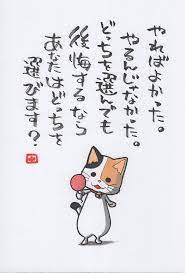 やればよかった。
やるんじゃなかった。
どっちを選んでも
後悔するなら
あなたはどっちを
選びます？